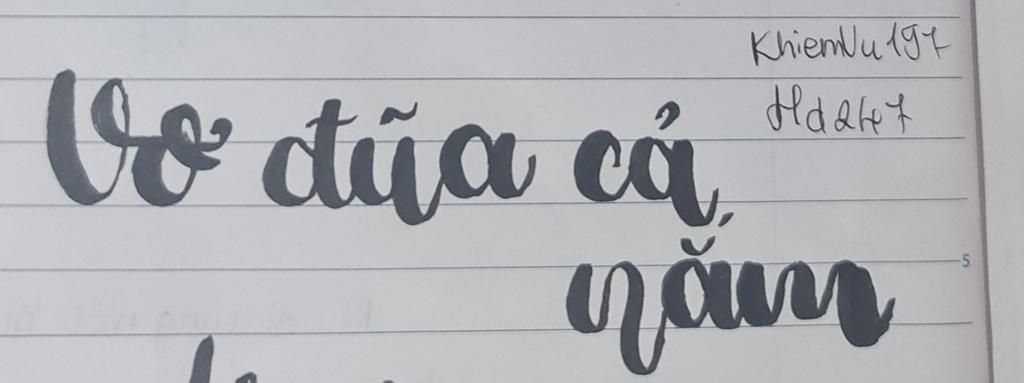 Vơ đũa cả
nắm
KhiemVu197
Hd247
5